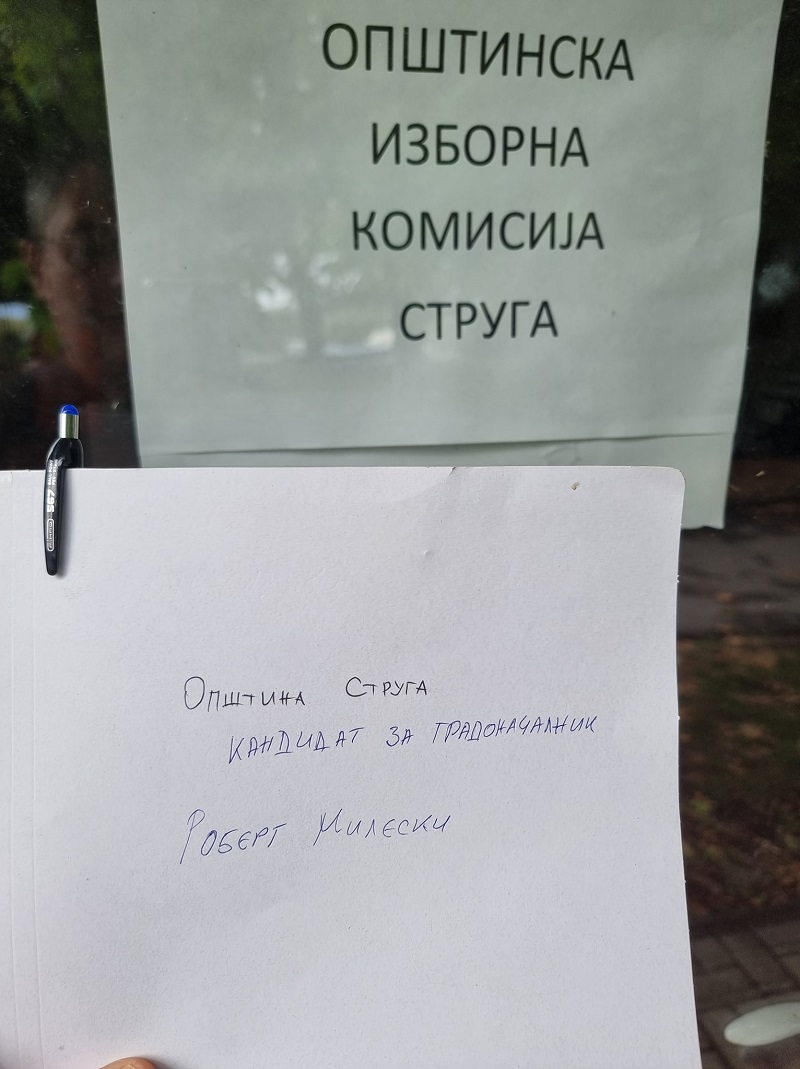 ОПШТИНСКА
ИЗБОРНА
КОМИСИЈА
СТРУГА
567
Општина Струга
КАНДИДАТ ЗА ГРАДОНАЧАЛНИК
Роберт Милески